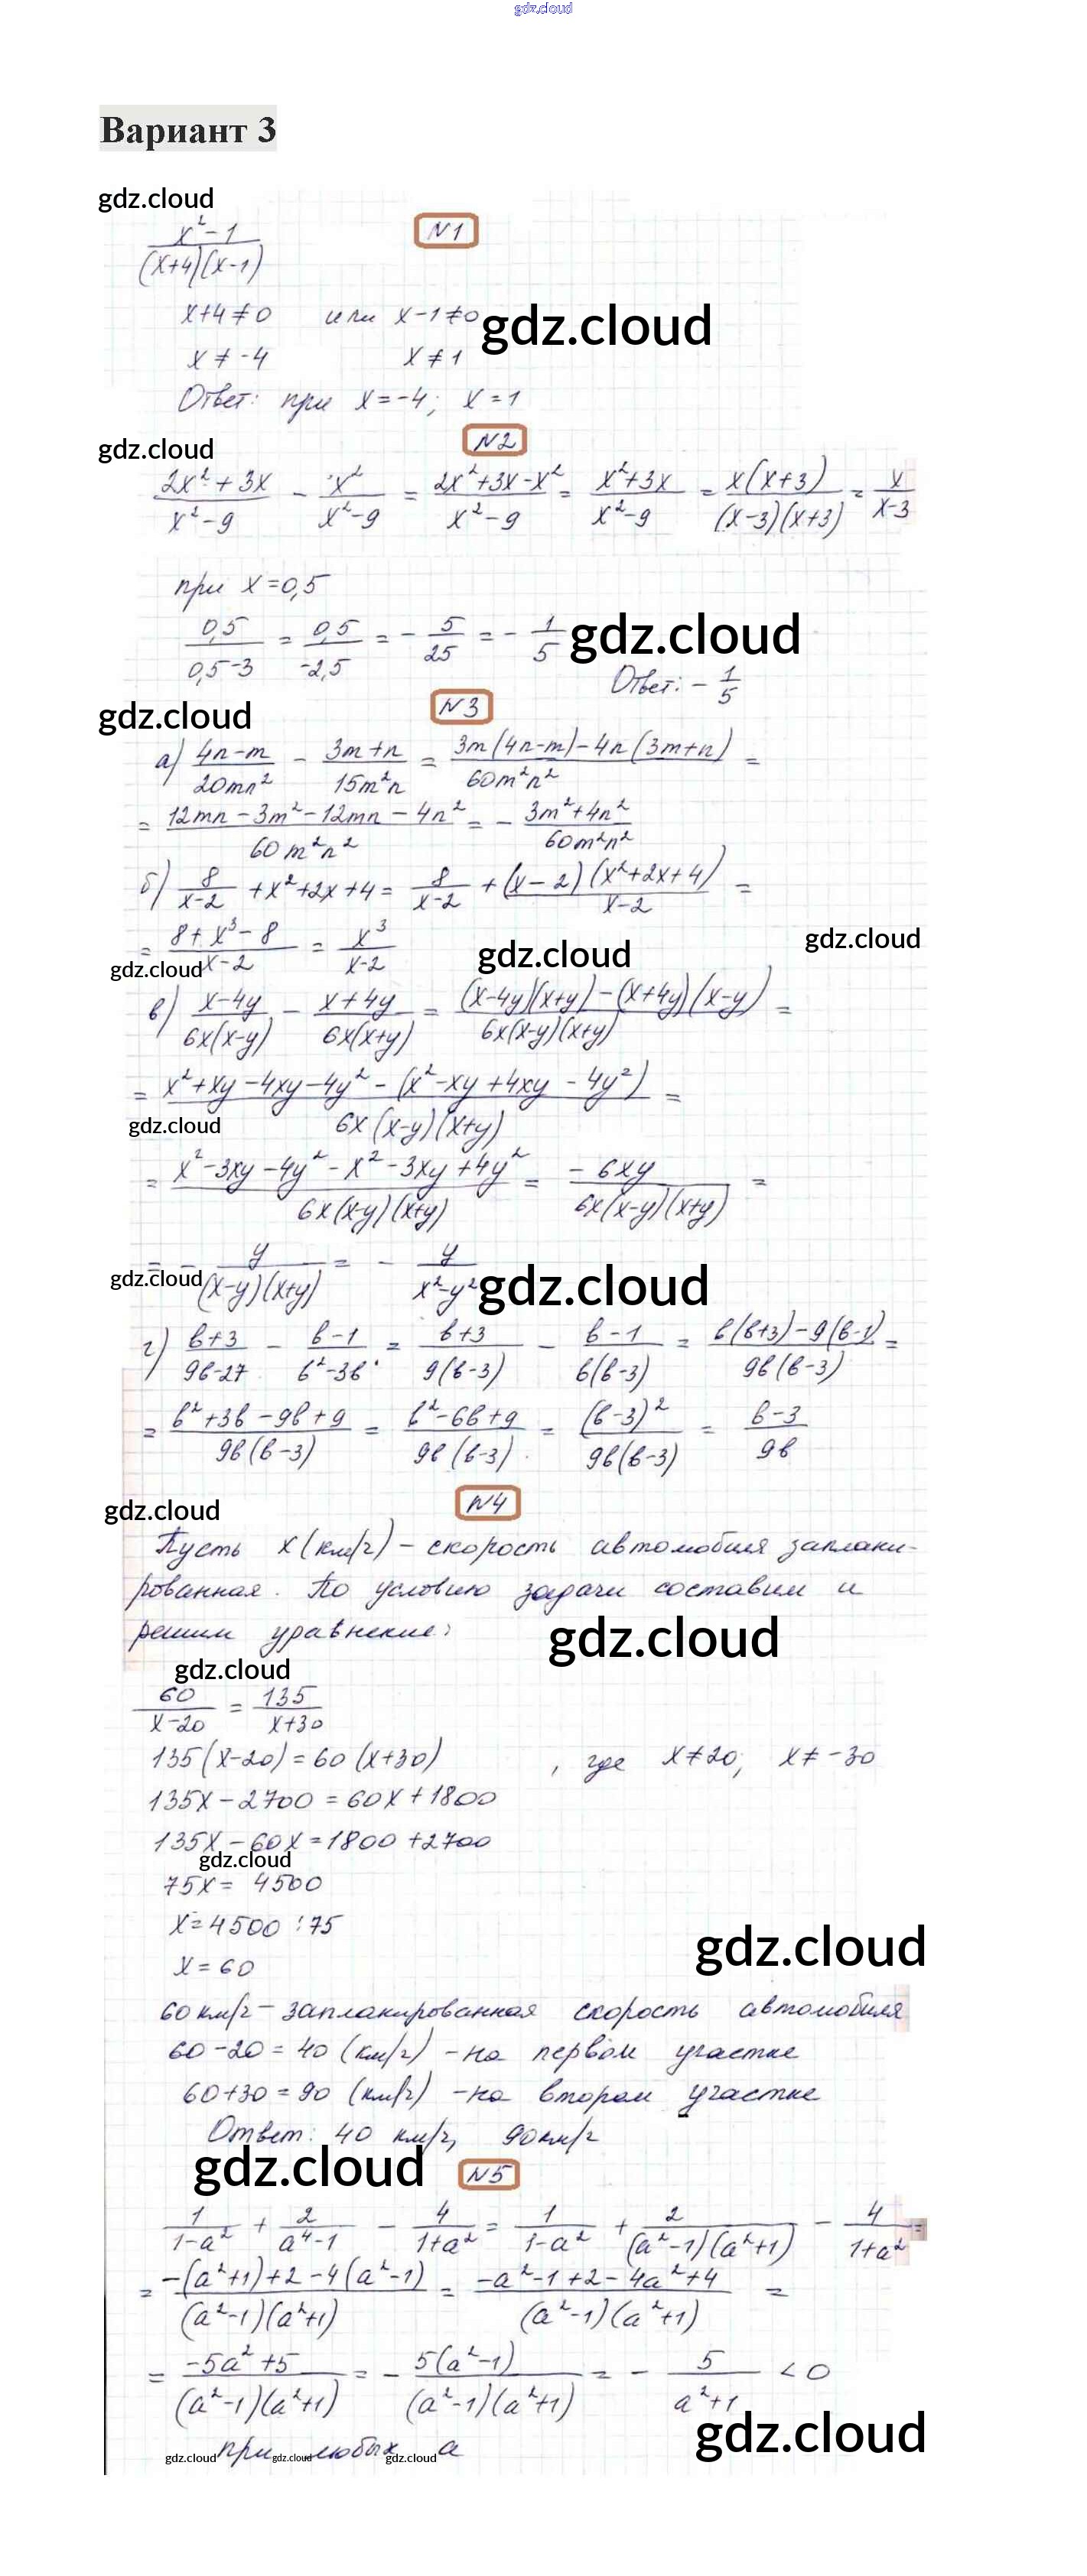 gdz.cloud
Вариант 3
gdz.cloud
N1
(x²-1)/((x+4)(x-1))
x+4≠0 или x-1≠0 gdz.cloud
x≠-4 x≠1
Ответ: при x=-4; x=1
gdz.cloud N2
(2x²+3x)/(x²-9) - x²/(x²-9) = (2x²+3x-x²)/(x²-9) = (x²+3x)/(x²-9) = x(x+3)/((x-3)(x+3)) = x/(x-3)
при x=0,5
0,5/(0,5-3) = 0,5/(-2,5) = - 5/25 = - 1/5 gdz.cloud
Ответ: - 1/5
gdz.cloud N3
а) (4n-m)/(20mn²) - (3m+n)/(15m²n) = (3m(4n-m)-4n(3m+n))/(60m²n²) =
= (12mn-3m²-12mn-4n²)/(60m²n²) = - (3m²+4n²)/(60m²n²)
б) 8/(x-2) + x²+2x+4 = 8/(x-2) + (x-2)(x²+2x+4)/(x-2) =
= (8+x³-8)/(x-2) = x³/(x-2)
gdz.cloud gdz.cloud gdz.cloud
в) (x-4y)/(6x(x-y)) - (x+4y)/(6x(x+y)) = ((x-4y)(x+y)-(x+4y)(x-y))/(6x(x-y)(x+y)) =
= (x²+xy-4xy-4y²-(x²-xy+4xy-4y²))/(6x(x-y)(x+y)) =
gdz.cloud
= (x²-3xy-4y²-x²-3xy+4y²)/(6x(x-y)(x+y)) = (-6xy)/(6x(x-y)(x+y)) =
= - y/((x-y)(x+y)) = - y/(x²-y²)
gdz.cloud gdz.cloud
г) (в+3)/(9в-27) - (в-1)/(в²-3в) = (в+3)/(9(в-3)) - (в-1)/(в(в-3)) = (в(в+3)-9(в-1))/(9в(в-3)) =
= (в²+3в-9в+9)/(9в(в-3)) = (в²-6в+9)/(9в(в-3)) = (в-3)²/(9в(в-3)) = (в-3)/(9в)
gdz.cloud N4
Пусть x(км/ч) - скорость автомобиля заплани-
рованная. По условию задачи составим и
решим уравнение:
gdz.cloud
gdz.cloud
60/(x-20) = 135/(x+30)
135(x-20)=60(x+30) , где x≠20; x≠-30
135x-2700=60x+1800
135x-60x=1800+2700
gdz.cloud
75x=4500
x=4500:75
gdz.cloud
x=60
60 км/ч - запланированная скорость автомобиля
60-20=40 (км/ч) - на первом участке
60+30=90 (км/ч) - на втором участке
Ответ: 40 км/ч, 90 км/ч
gdz.cloud N5
1/(1-a²) + 2/(a⁴-1) - 4/(1+a²) = 1/(1-a²) + 2/((a²-1)(a²+1)) - 4/(1+a²) =
= (-(a²+1)+2-4(a²-1))/((a²-1)(a²+1)) = (-a²-1+2-4a²+4)/((a²-1)(a²+1)) =
= (-5a²+5)/((a²-1)(a²+1)) = - 5(a²-1)/((a²-1)(a²+1)) = - 5/(a²+1) <0
gdz.cloud
при любых a
gdz.cloud gdz.cloud gdz.cloud